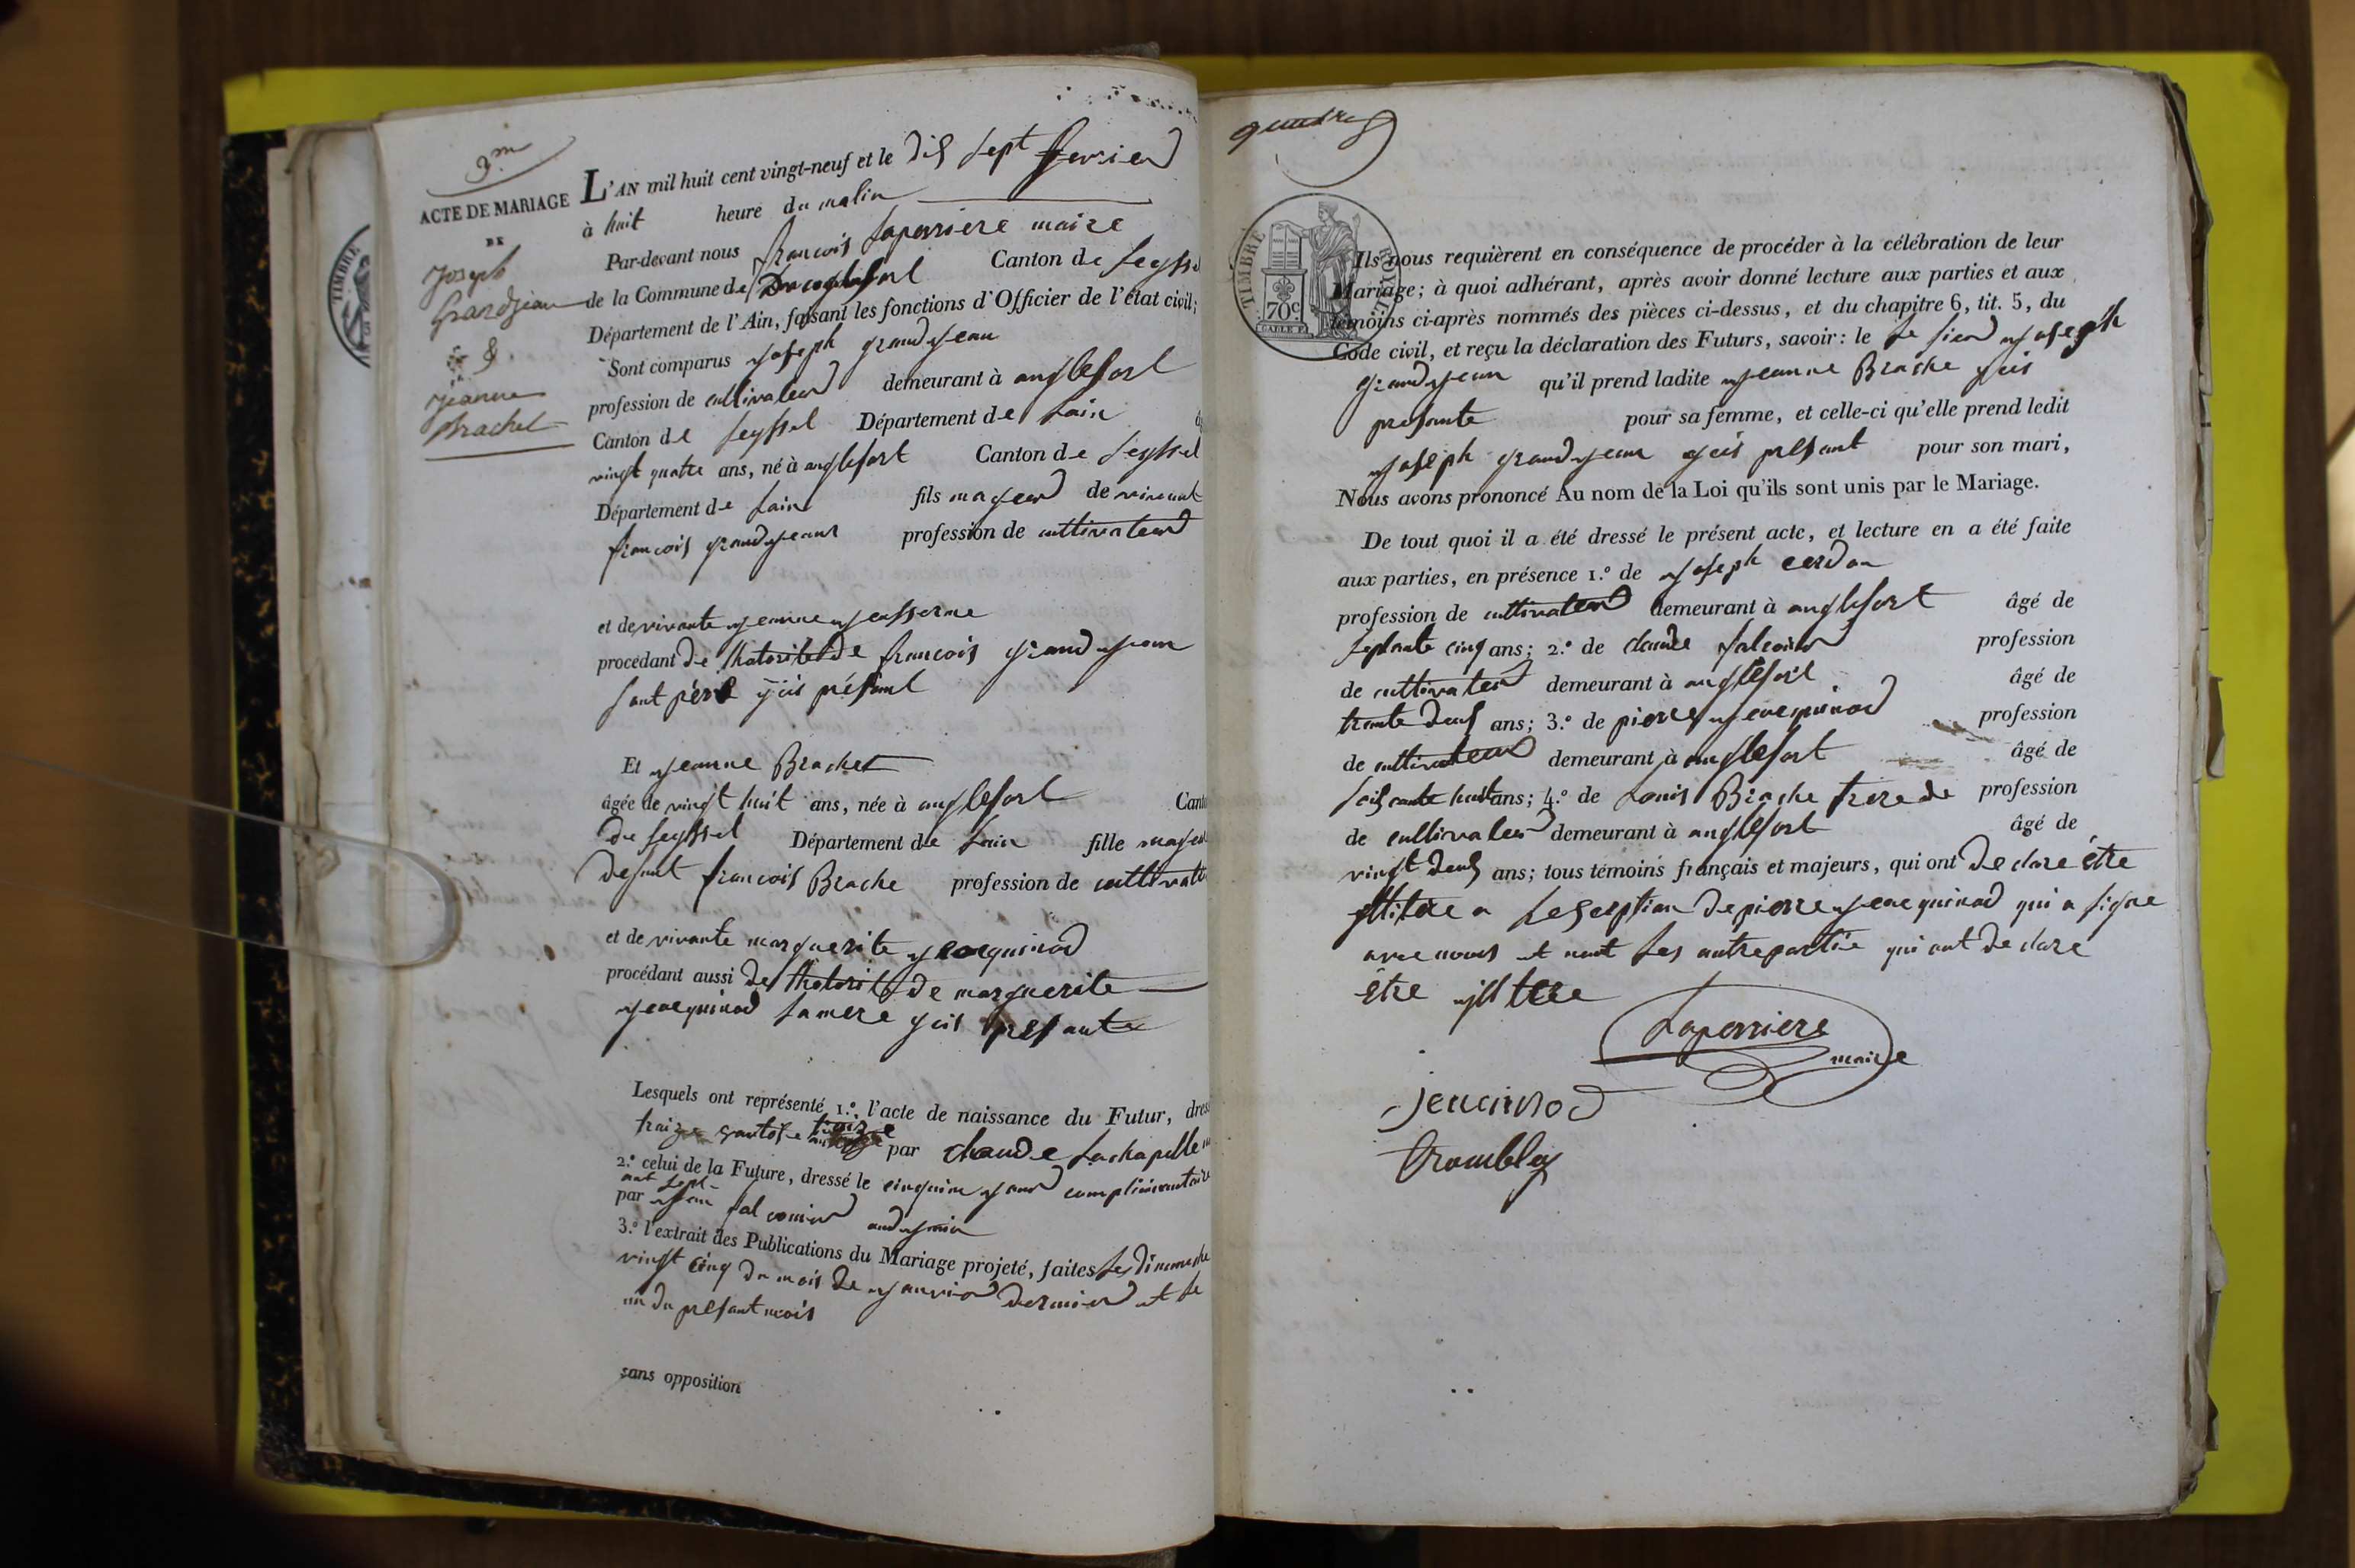 3.me
ACTE DE MARIAGE
DE
Joseph
Grandjean
&
Jeanne
Brachet
L'AN mil huit cent vingt-neuf et le dis sept fevrier
à huit heure du matin
Par-devant nous francois Laperriere maire
de la Commune de Danglefort Canton de Seyssel
Département de l'Ain, faisant les fonctions d'Officier de l'état civil;
Sont comparus joseph grandjean
profession de cultivateur demeurant à anglefort
Canton de Seyssel Département de Lain
vingt quatre ans, né à anglefort Canton de Seyssel
Département de Lain fils majeur de vivant
francois grandjean profession de cultivateur
et de vivante jeanne
procédant de Lhatorité de francois grandjean
sont père ycis présant
Et jeanne Brachet
âgée de vingt huit ans, née à anglefort Cant
de Seyssel Département de Lain fille majeu
defunt francois Brache profession de cultivat
et de vivante marguerite jeacquinod
procédant aussi de Lhatorité de marguerite
jeacquinod sa mere ycis presante
Lesquels ont représenté 1.º l'acte de naissance du Futur, dres
par Claude Lachapelle
2.º celui de la Future, dressé le cinquime jour complimentaire
ant sept
par jean falconier andjoin
3.º l'extrait des Publications du Mariage projeté, faites Les dimanche
vingt cinq du mois de janvier dernier et le
un du presant mois
sans opposition
quatre
TIMBRE ROYAL
70c
Ils nous requièrent en conséquence de procéder à la célébration de leur
Mariage; à quoi adhérant, après avoir donné lecture aux parties et aux
témoins ci-après nommés des pièces ci-dessus, et du chapitre 6, tit. 5, du
Code civil, et reçu la déclaration des Futurs, savoir: le Le sieur joseph
grandjean qu'il prend ladite jeanne Brache ycis
presante pour sa femme, et celle-ci qu'elle prend ledit
joseph grandjean ycis presant pour son mari,
Nous avons prononcé Au nom de la Loi qu'ils sont unis par le Mariage.
De tout quoi il a été dressé le présent acte, et lecture en a été faite
aux parties, en présence 1.º de joseph cerdon
profession de cultivateur demeurant à anglefort âgé de
septante cinq ans; 2.º de claude falconier profession
de cultivateur demeurant à anglefort âgé de
trante deus ans; 3.º de pierre jeacquinod profession
de cultivateur demeurant à anglefort âgé de
soissante huit ans; 4.º de Louis Brache frere de profession
de cultivateur demeurant à anglefort âgé de
vingt deus ans; tous témoins français et majeurs, qui ont declare être
a Lesception de pierre jeacquinod qui a signe
avec nous et nont les autre partie qui ont declare
être
Laperriere
maire
jeacinod
Trombley